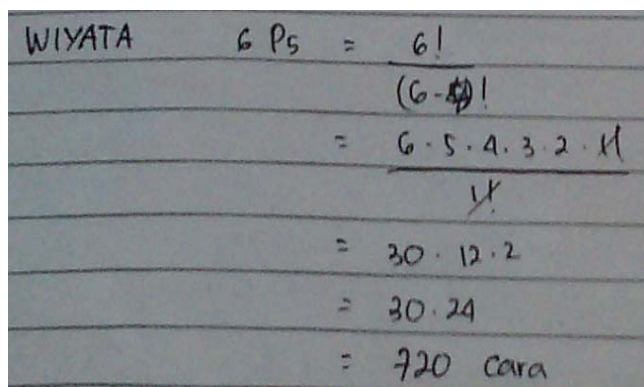 WIYATA 6 P5 = 6!
(6-)!
= 6 . 5 . 4 . 3 . 2 . 1!
1!
= 30 . 12 . 2
= 30 . 24
= 720 cara